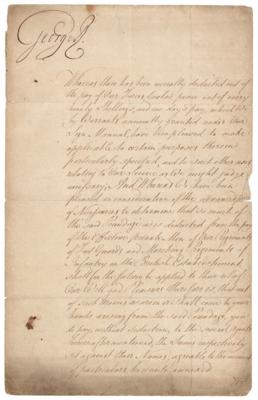 George R
Whereas there has been annually deducted out of
the pay of Our Forces twelve pence out of every
twenty Shillings, and one day's pay, which We
by Warrants annually granted under Our
Sign Manual, have been pleased to make
applicable to certain purposes therein
particularly specified, and to such other uses
relating to Our Service as We might judge
necessary; And Whereas We have been
pleased in consideration of the
to determine that so much of
the said Poundage as is deducted from the pay
of the Effective private Men of Our Regiments
of Foot Guards and Marching Regiments of
Infantry on the British Establishment
shall for the future be applied to their relief
Our Will and Pleasure therefore is, that out
of such Monies as are or shall come to your
hands arising from the said Poundage, you
do pay, without deduction, to the several
beforementioned, the Sums respectively
set against their Names, agreable to the
of particulars hereunto annexed